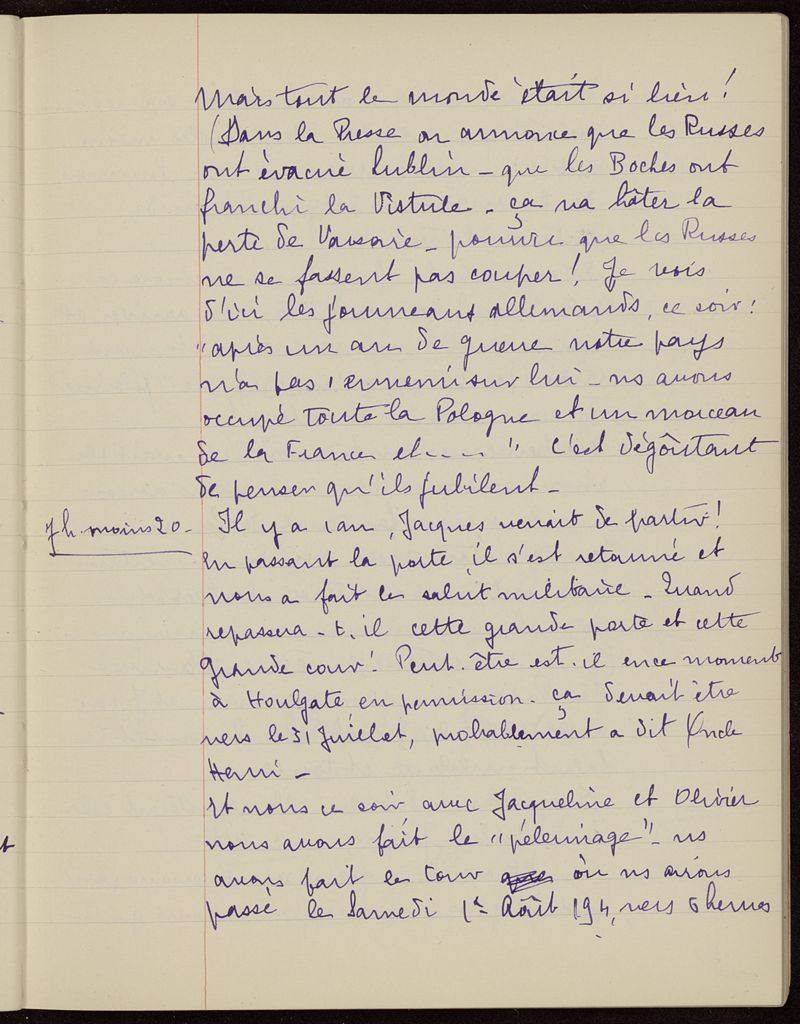 Mais tout le monde était si bien !
(Dans la Presse on annonce que les Russes
ont évacué Lublin - que les Boches ont
franchi la Vistule - ça va hâter la
perte de Varsovie - pourvu que les Russes
ne se fassent pas couper ! Je vois
d'ici les journeaux allemands, ce soir :
"après un an de guerre notre pays
n'a pas l'ennemi sur lui - ns avons
occupé toute la Pologne et un morceau
de la France et - - - - " C'est dégoûtant
de penser qu'ils jubilent -
7 h. moins 20 - Il y a 1 an, Jacques venait de partir !
En passant la porte, il s'est retourné et
nous a fait le salut militaire - Quand
repassera-t-il cette grande porte et cette
grande cour ! Peut-être est-il en ce moment
à Houlgate en permission. ça devait être
vers le 31 Juillet, probablement a dit Oncle
Henri -
Et nous ce soir, avec Jacqueline et Olivier
nous avons fait le "pélerinage" - ns
avons fait le tour où ns avions
passé le Samedi 1er Août 194, vers 5 heures